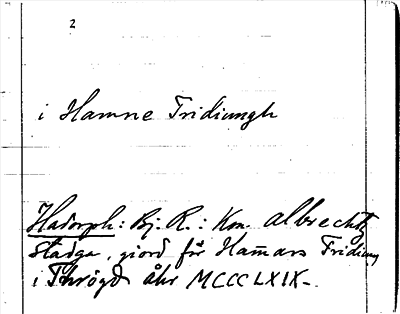 2
i Hamne Tridiungh
Hadorph: Bj. R.: Kon. Albrechts
Stadga, giord för Hamars Tridiung
i Thrögd åhr MCCCLXIX-.